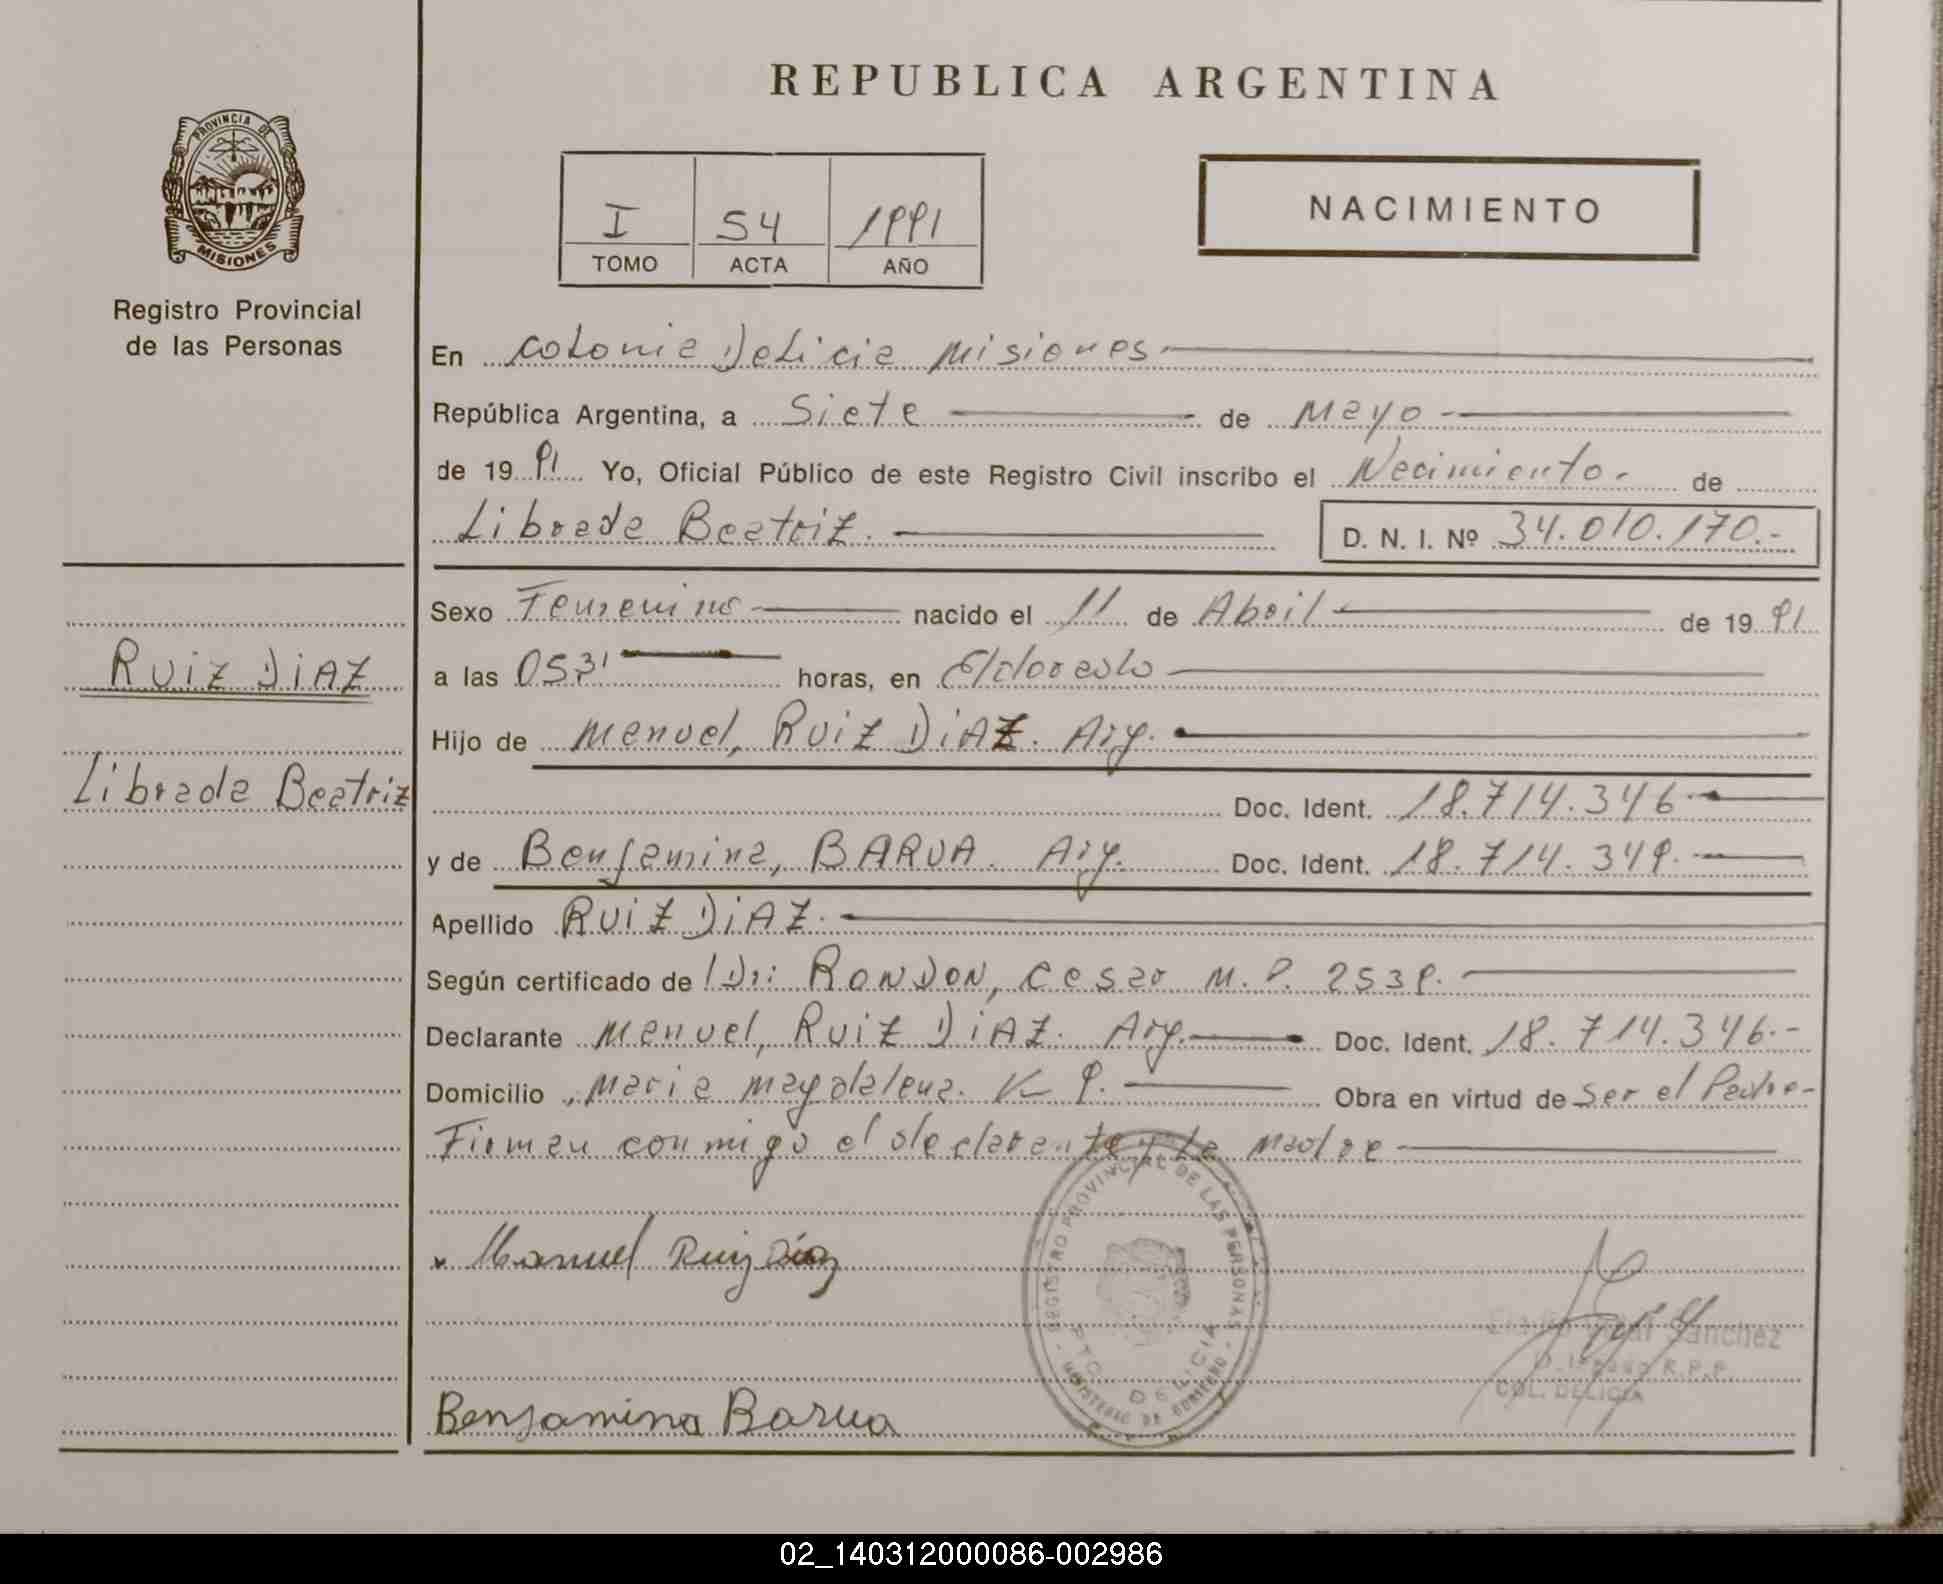 REPUBLICA ARGENTINA
PROVINCIA DE
MISIONES
Registro Provincial
de las Personas
I 54 1991
TOMO ACTA AÑO
NACIMIENTO
En Colonia Delicia Misiones
República Argentina, a Siete de Mayo
de 1991 Yo, Oficial Público de este Registro Civil inscribo el Nacimiento de
Librada Beatriz. D. N. I. Nº 34.010.170.-
Sexo Femenino nacido el 11 de Abril de 1991
RUIZ DIAZ
a las 0531 horas, en Eldorado
Hijo de Manuel, RUIZ DIAZ. Arg.
Librada Beatriz
Doc. Ident. 18.714.346
y de Benjamina, BARUA. Arg. Doc. Ident. 18.714.349.
Apellido RUIZ DIAZ.
Según certificado de Dr: RONDON, Cesar M.P. 2539.
Declarante Manuel, RUIZ DIAZ. Arg. Doc. Ident. 18.714.346.-
Domicilio Maria Magdalena. K 9. Obra en virtud de Ser el Padre-
Firman conmigo el declarante y la Madre
REGISTRO PROVINCIAL DE LAS PERSONAS
MINISTERIO DE GOBIERNO
PTO. DELICIA
Manuel Ruiz Díaz
Sanchez
R.P.P.
COL. DELICIA
Benjamina Barua
02_140312000086-002986